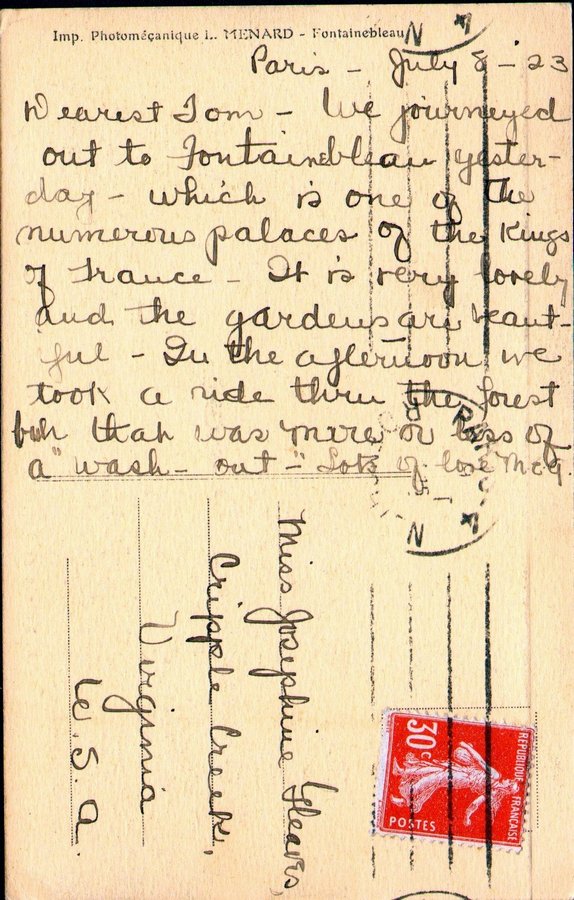 Imp. Photomécanique L. MENARD - Fontainebleau
Paris - July 8 - 23
Dearest Tom - We journeyed
out to Fontainebleau yester-
day - which is one of the
numerous palaces of the Kings
of France - It is very lovely
and the gardens are beaut-
iful - In the afternoon we
took a ride thru the forest
but that was more or less of
a "wash - out" - Lots of love McG.
Miss Josephine Gleaves,
Cripple Creek,
Virginia
U.S.a.
REPUBLIQUE FRANÇAISE
30c
POSTES